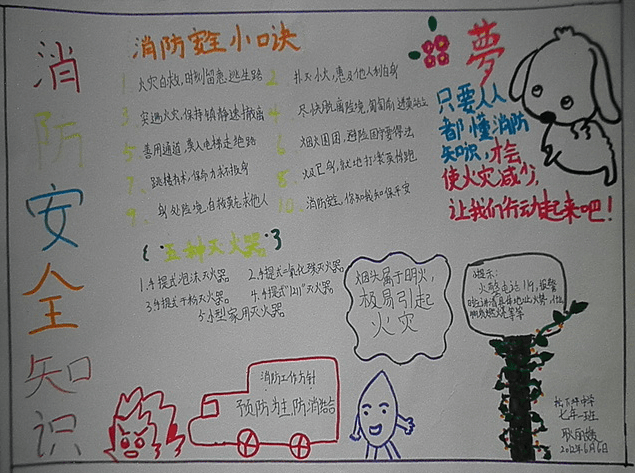 消防安全知识
消防安全小口诀
1. 火灾自救,时刻留意,逃生路
2. 扑灭小火,惠及他人利自身
3. 突遇火灾,保持镇静速撤离
4. 尽快脱离险境,
5. 善用通道,莫入电梯走绝路
6. 烟火围困,避险固守要得法
7. 跳楼有术,保命力求
8. 火已及身,就地打滚莫惊跑
9. 身处险境,自救莫忘救他人
10. 消防安全,你知我知保平安
五种灭火器
1.手提式泡沫灭火器
2.手提式二氧化碳灭火器
3.手提式干粉灭火器。
4.手提式"1211"灭火器
5.小型家用灭火器
夢
只要人人
都懂消防
知识,才会
使火灾减少,
让我们行动起来吧!
烟头属于明火,
极易引起
火灾
提示:
火警电话119,报警
时
燃烧等等
消防工作方针
预防为主防消结合
中学
七年一班
2012年6月6日